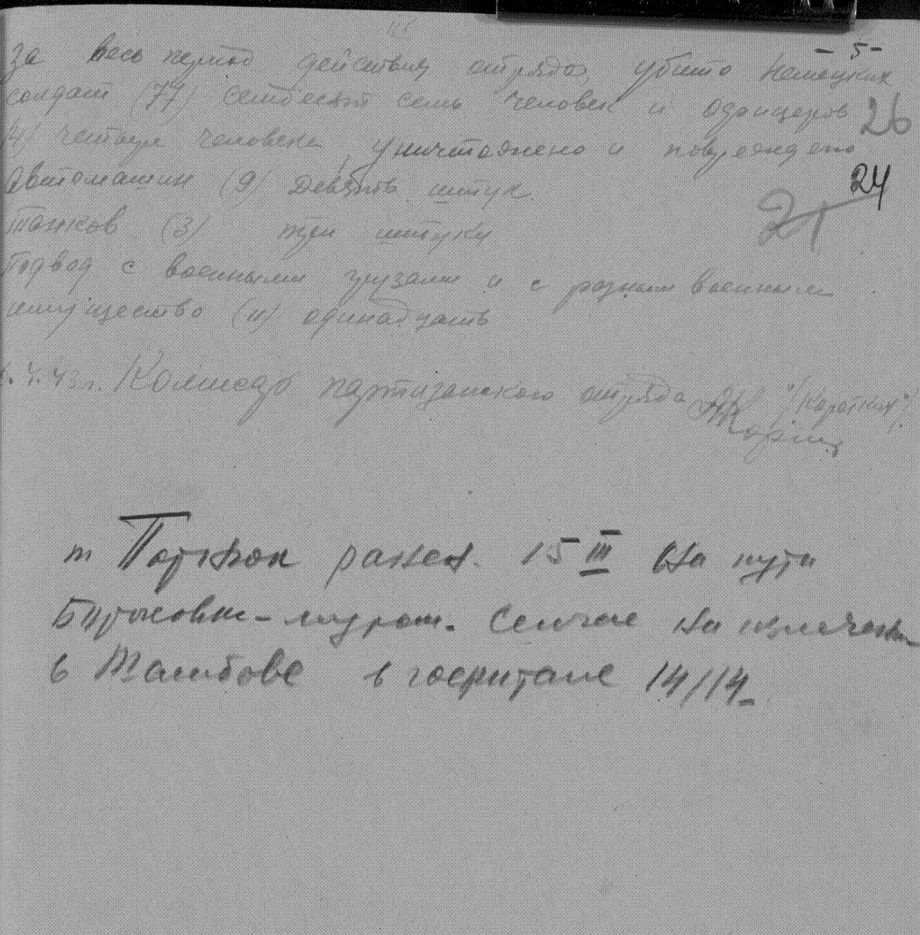 - 5 -
за весь период действия отряда, убито немецких
солдат (77) семдесят семь человек и офицеров
26
4) четыре человека, уничтожено и повреждено
автомашин (9) девять штук
24
21
танков (3) три штуки
Подвод с военными грузами и с разным военным
имущество (11) одинадцать
4.43 г. Комиссар партизанского отряда /Коротких/
т ранен. 15 III на пути
Сейчас на излечении
в Тамбове в госпитале 14/14